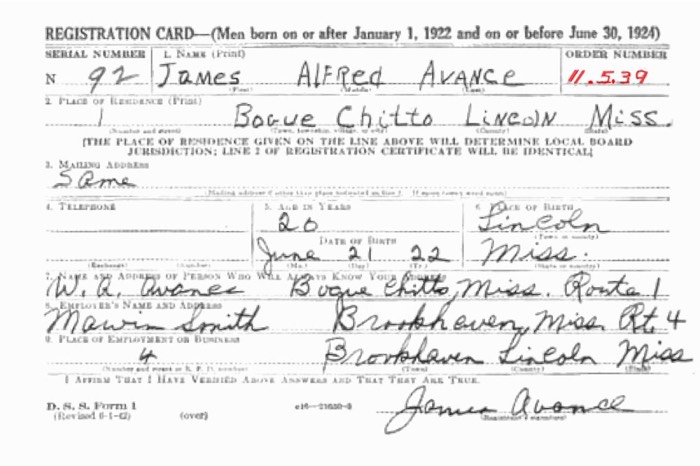 REGISTRATION CARD—(Men born on or after January 1, 1922 and on or before June 30, 1924)
SERIAL NUMBER 1. NAME (Print) ORDER NUMBER
N 92 JAMES ALFRED AVANCE 11.5.39
(First) (Middle) (Last)
2. PLACE OF RESIDENCE (Print)
1 BOGUE CHITTO LINCOLN MISS.
(Number and street) (Town, township, village, or city) (County) (State)
[THE PLACE OF RESIDENCE GIVEN ON THE LINE ABOVE WILL DETERMINE LOCAL BOARD
JURISDICTION; LINE 2 OF REGISTRATION CERTIFICATE WILL BE IDENTICAL]
3. MAILING ADDRESS
Same
[Mailing address if other than place indicated on line 2. If same insert word same]
4. TELEPHONE 5. AGE IN YEARS 6. PLACE OF BIRTH
20 Lincoln
DATE OF BIRTH (Town or county)
June 21 22 Miss.
(Exchange) (Number) (Mo.) (Day) (Yr.) (State or country)
7. NAME AND ADDRESS OF PERSON WHO WILL ALWAYS KNOW YOUR ADDRESS
W. A. Avance Bogue Chitto, Miss. Route 1
8. EMPLOYER'S NAME AND ADDRESS
Smith Brookhaven, Miss. Rt. 4
9. PLACE OF EMPLOYMENT OR BUSINESS
4 Brookhaven Lincoln Miss
(Number and street or R. F. D. number) (Town) (County) (State)
I AFFIRM THAT I HAVE VERIFIED ABOVE ANSWERS AND THAT THEY ARE TRUE.
D. S. S. Form 1
(Revised 6-1-42) (over) James Avance
(Registrant's signature)